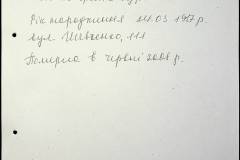 Рік народження 14.03 1917 р.
вул. Шевченко, 111
Померла в червні 2008 р.